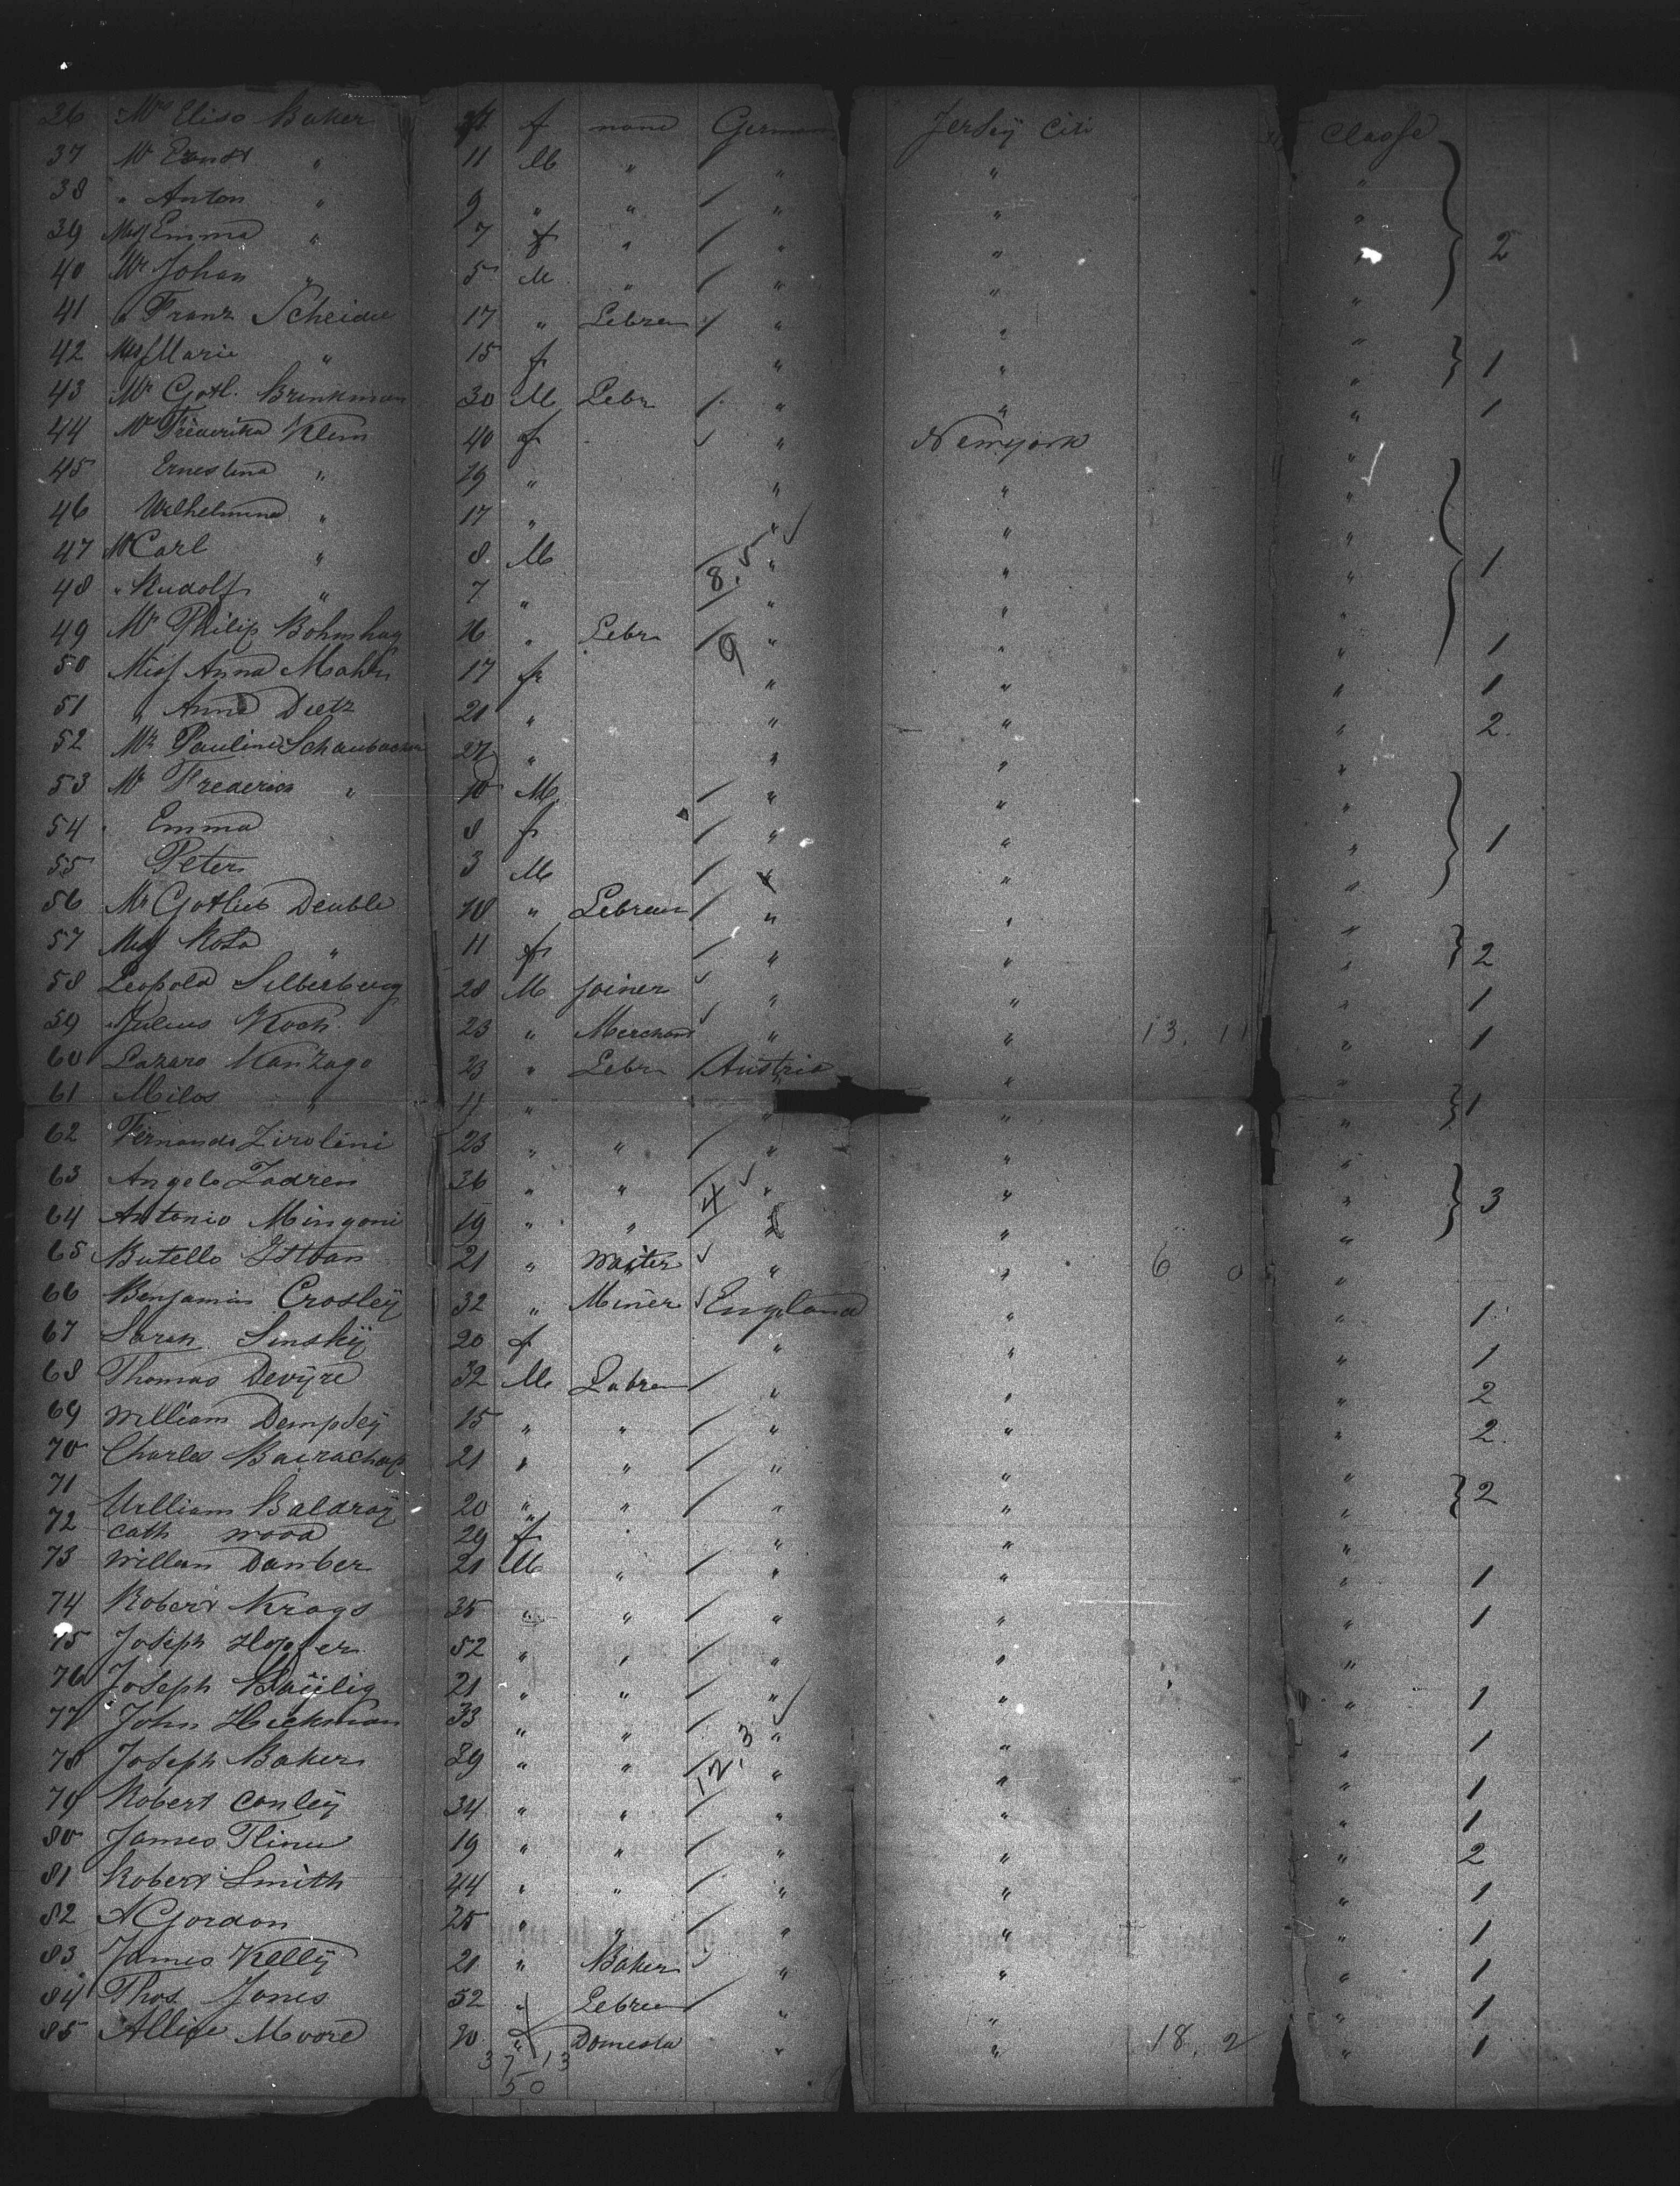 36 Mrs Elisa Baker f none German Jersey Citi Classe
37 Mr Ernst " 11 M " " " "
38 " Anton " 9 " " " " "
39 Miss Emma " 7 f " " " " 2
40 Mr Johan " 5 M " " " "
41 " Franz Scheidu 17 " Lebrer " " "
42 Miss Marie " 15 f " " " 1
43 Mr Gotl. Brinkman 30 M Lebr " " " 1
44 Frederika Klein 40 f " New york "
45 Ernestina " 19 " " " "
46 Wilhelmina " 17 " " " "
47 Mr Carl " 8 M " " " 1
48 " Rudolf " 7 " 8.5 " " "
49 Mr Philip Bohmhag 16 " Lebr 9 " " " 1
50 Miss Anna 17 f " " " 1
51 " Anna Dietz 21 " " " " 2
52 Pauline Schaubacher 27 " " " "
53 Mr Frederick " 10 M " " "
54 Emma 8 f " " " 1
55 Peter 3 M " "
56 Mr Gotlieb Deuble 18 " Lebrer " " "
57 Miss Rosa " 11 f " " " 2
58 Leopold Silberberg 28 M Joiner " " " 1
59 Julius Koch 23 " Merchant " " 13. 11 " 1
60 Lazaro Manzago 23 " Lebr Austria " "
61 Milos " 11 " " " " 1
62 Fernando Zirolini 23 " " " " "
63 Angelo Zadren 36 " " 4 " " " 3
64 Antonio Mingoni 19 " " " "
65 Butello 21 " Waiter " " 6 0 "
66 Benjamin Crosley 32 " Miner England " " 1
67 Saran Sinsky 20 f " " " 1
68 Thomas Devyre 32 M Labrer " " " 2
69 William Dempsey 15 " " " " " 2
70 Charles 21 " " " " "
71 William Baldray 20 " " " " " 2
72 Cath Wood 29 f " " "
73 Willem Danber 21 M " " " " 1
74 Robert Krags 35 " " " " " 1
75 Joseph 52 " " " " "
76 Joseph 21 " " " " " 1
77 John Hickman 33 " " " " " 1
78 Joseph Baker 39 " " 12.3 " " " 1
79 Robert Conley 34 " " " " " 1
80 James 19 " " " " " 2
81 Robert Smith 44 " " " " " 1
82 A Gordon 25 " " " " " 1
83 James Kelly 21 " Baker " " " 1
84 Thos Jones 52 " Lebrer " " " 1
85 Allise Moore 20 Domesta " " 18. 2 " 1
37 13
50